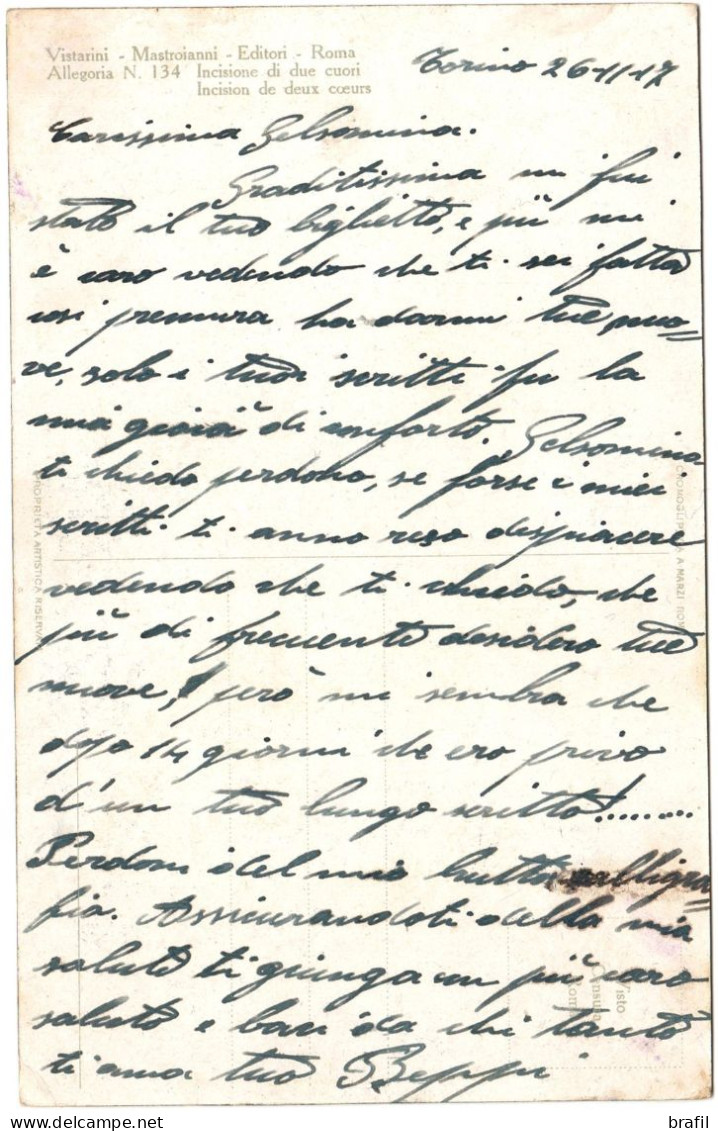 Vistarini - Mastroianni - Editori - Roma
Allegoria N. 134 Incisione di due cuori
Incision de deux cœurs
Torino 26-11-17
Carissima Gelsomina.
Graditissima mi fui
stato il tuo biglietto, e più mi
è caro vedendo che ti sei fatta
così premura ha darmi tue nuo=
ve, solo i tuoi scritti fu la
mia gioia di conforto. Gelsomina
ti chiedo perdono, se forse i miei
scritti ti anno reso dispiacere
vedendo che ti chiedo, che
più di frequente desidero tue
nuove, però mi sembra che
dopo 14 giorni che ero privo
d'un tuo lungo scritto!........
Perdoni del mio brutta calligra=
fia. Assicurandoti della mia
salute ti giunga un più caro
saluto e baci da chi tanto
ti ama tuo Beppi
PROPRIETÀ ARTISTICA RISERVATA
A MARZI
Visto
Censura
brafil